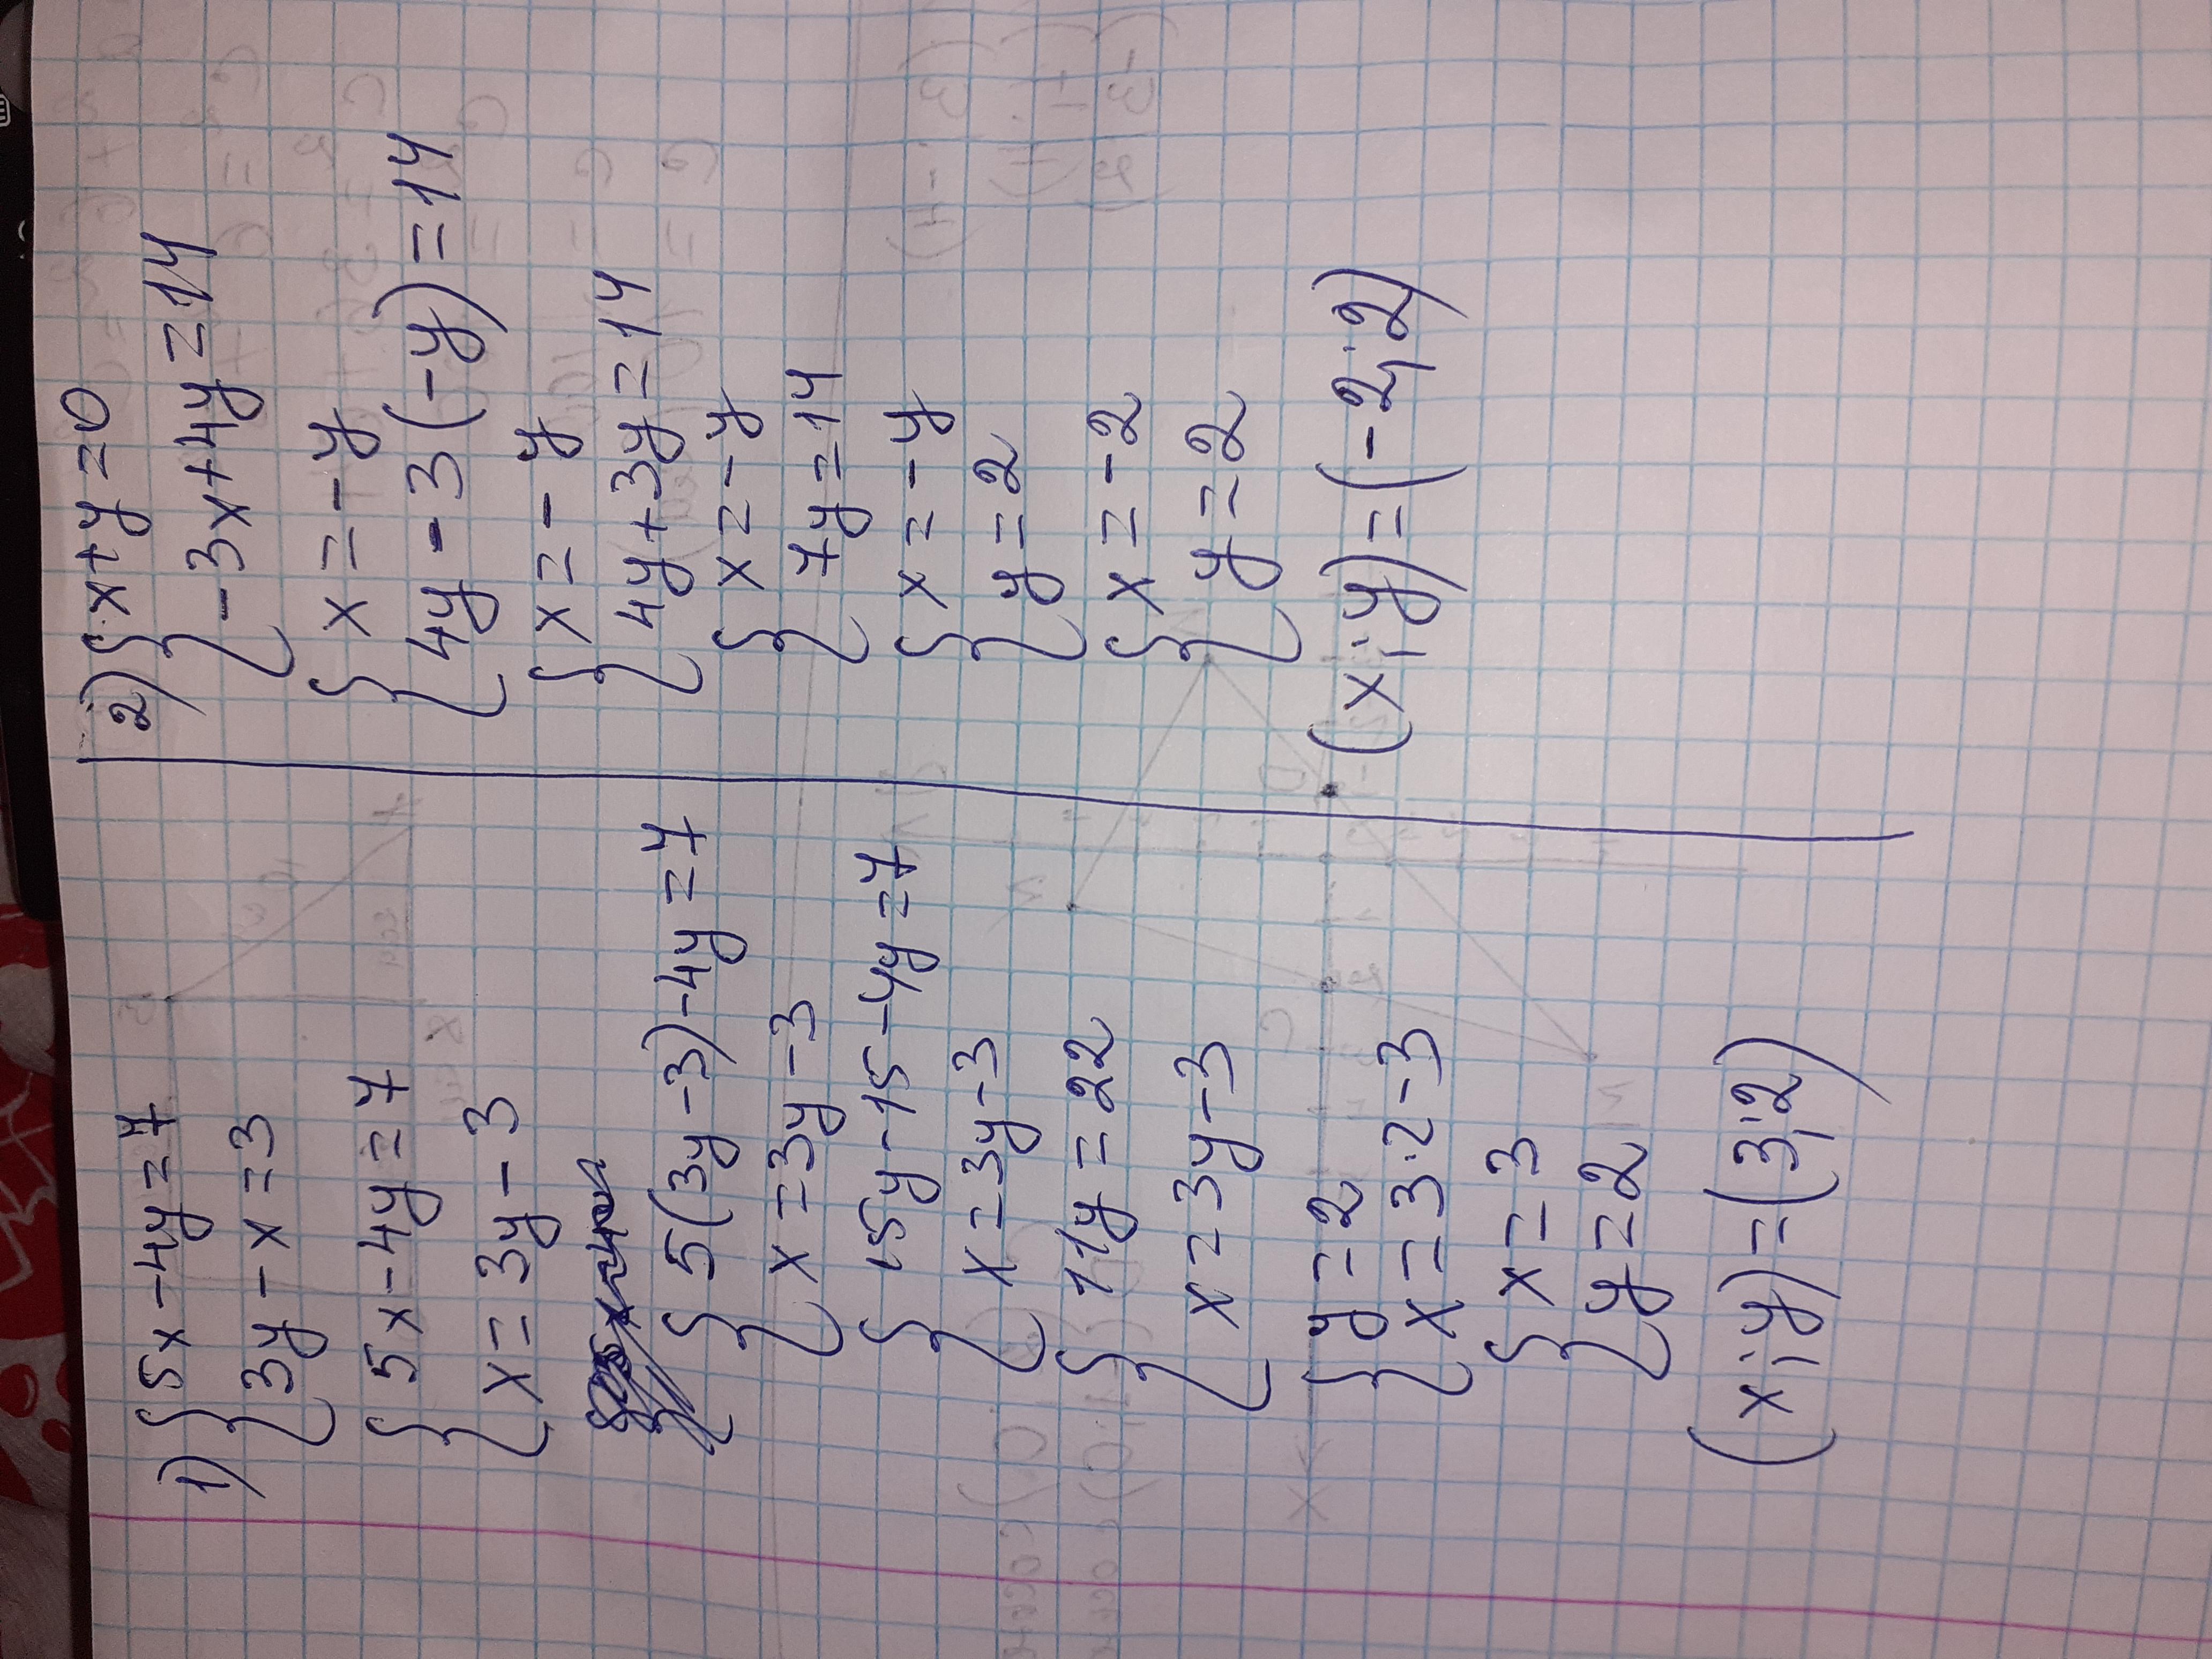 1) { 5x-4y=7
{ 3y-x=3
{ 5x-4y=7
{ x=3y-3
{ 5(3y-3)-4y=7
{ x=3y-3
{ 15y-15-4y=7
{ x=3y-3
{ 11y=22
{ x=3y-3
{ y=2
{ x=3·2-3
{ x=3
{ y=2
(x;y)=(3;2)
2) { x+y=0
{ -3x+4y=14
{ x=-y
{ 4y-3(-y)=14
{ x=-y
{ 4y+3y=14
{ x=-y
{ 7y=14
{ x=-y
{ y=2
{ x=-2
{ y=2
(x;y)=(-2;2)